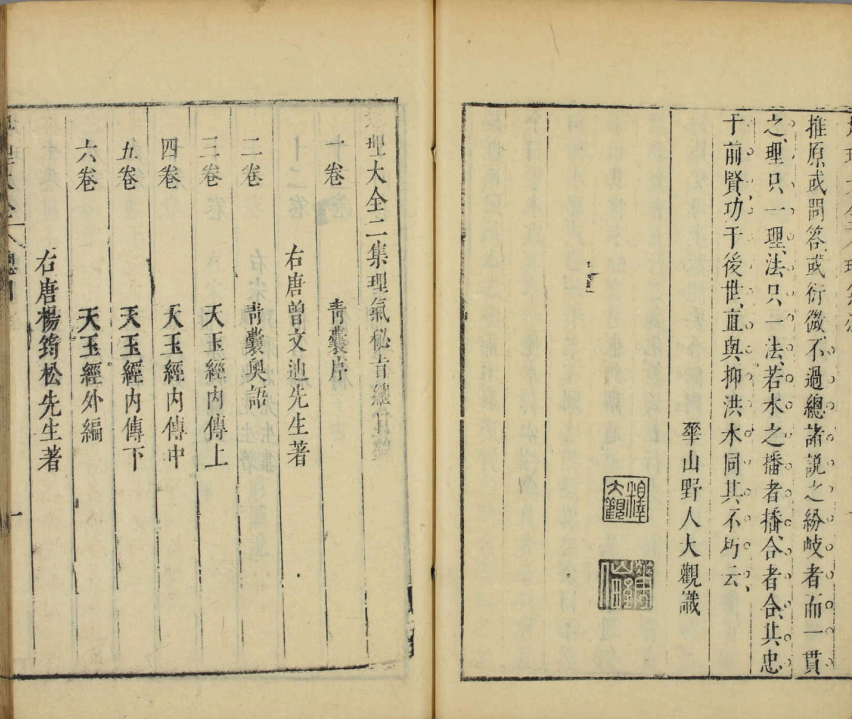 推原或問答或衍微不過總諸說之紛岐者而一貫
之理只一理法只一法若水之播者播合者合其忠
于前賢功于後世直與抑洪水同其不朽云
華山野人大觀識
大觀
地理大全二集理氣秘旨總目錄
一卷 青囊序
右唐曾文辿先生著
二卷 青囊奧語
三卷 天玉經內傳上
四卷 天玉經內傳中
五卷 天玉經內傳下
六卷 天玉經外編
右唐楊筠松先生著
地理大全 總目 一